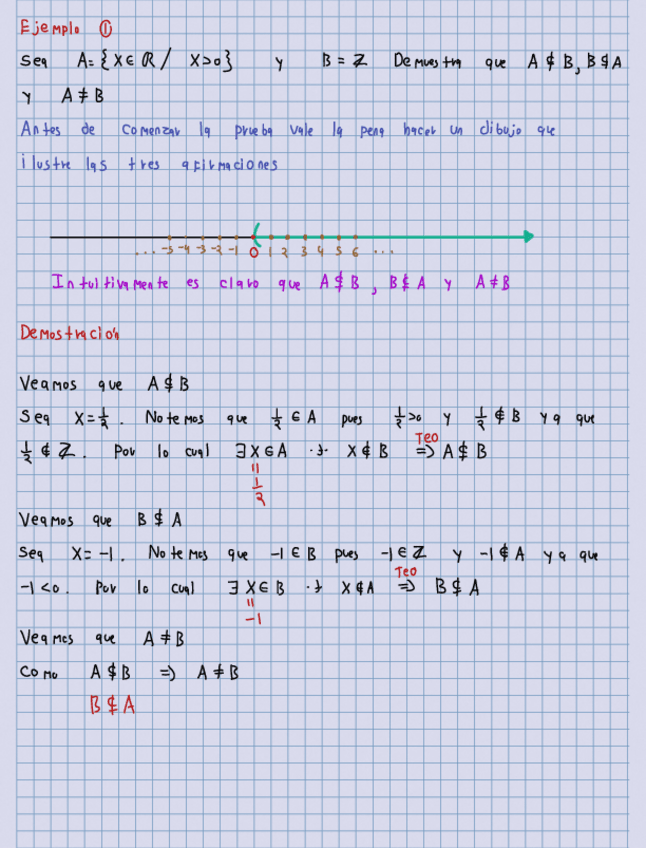 Ejemplo ①
Sea A = {x ∈ ℝ / x>0} y B = ℤ Demuestra que A ⊄ B, B ⊄ A
y A ≠ B
Antes de comenzar la prueba vale la pena hacer un dibujo que
ilustre las tres afirmaciones
... -5 -4 -3 -2 -1 0 1 2 3 4 5 6 ...
Intuitivamente es claro que A ⊄ B, B ⊄ A y A ≠ B
Demostración
Veamos que A ⊄ B
Sea x = 1/2. Notemos que 1/2 ∈ A pues 1/2 > 0 y 1/2 ∉ B ya que
Teo
1/2 ∉ ℤ. Por lo cual ∃ x ∈ A ·∋· x ∉ B ⇒ A ⊄ B
=
1/2
Veamos que B ⊄ A
Sea x = -1. Notemos que -1 ∈ B pues -1 ∈ ℤ y -1 ∉ A ya que
Teo
-1 < 0. Por lo cual ∃ x ∈ B ·∋ x ∉ A ⇒ B ⊄ A
=
-1
Veamos que A ≠ B
Como A ⊄ B ⇒ A ≠ B
B ⊄ A